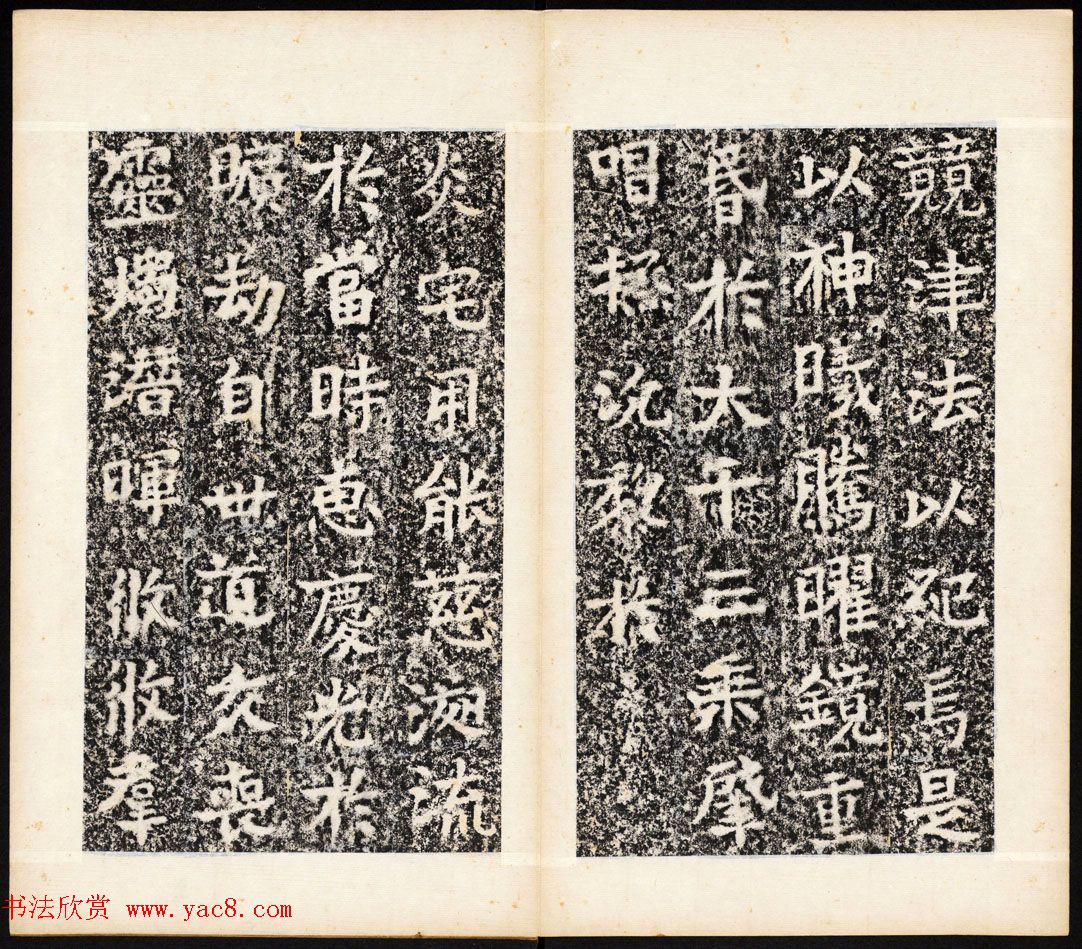 競津法以紀焉是
以神曦騰曜鏡重
昏於大千三乘肇
唱拯沉於
炎宅用能慈流
於當時惠慶光於
曠劫自世道交喪
靈燭潛暉攸攸羣
书法欣赏 www.yac8.com